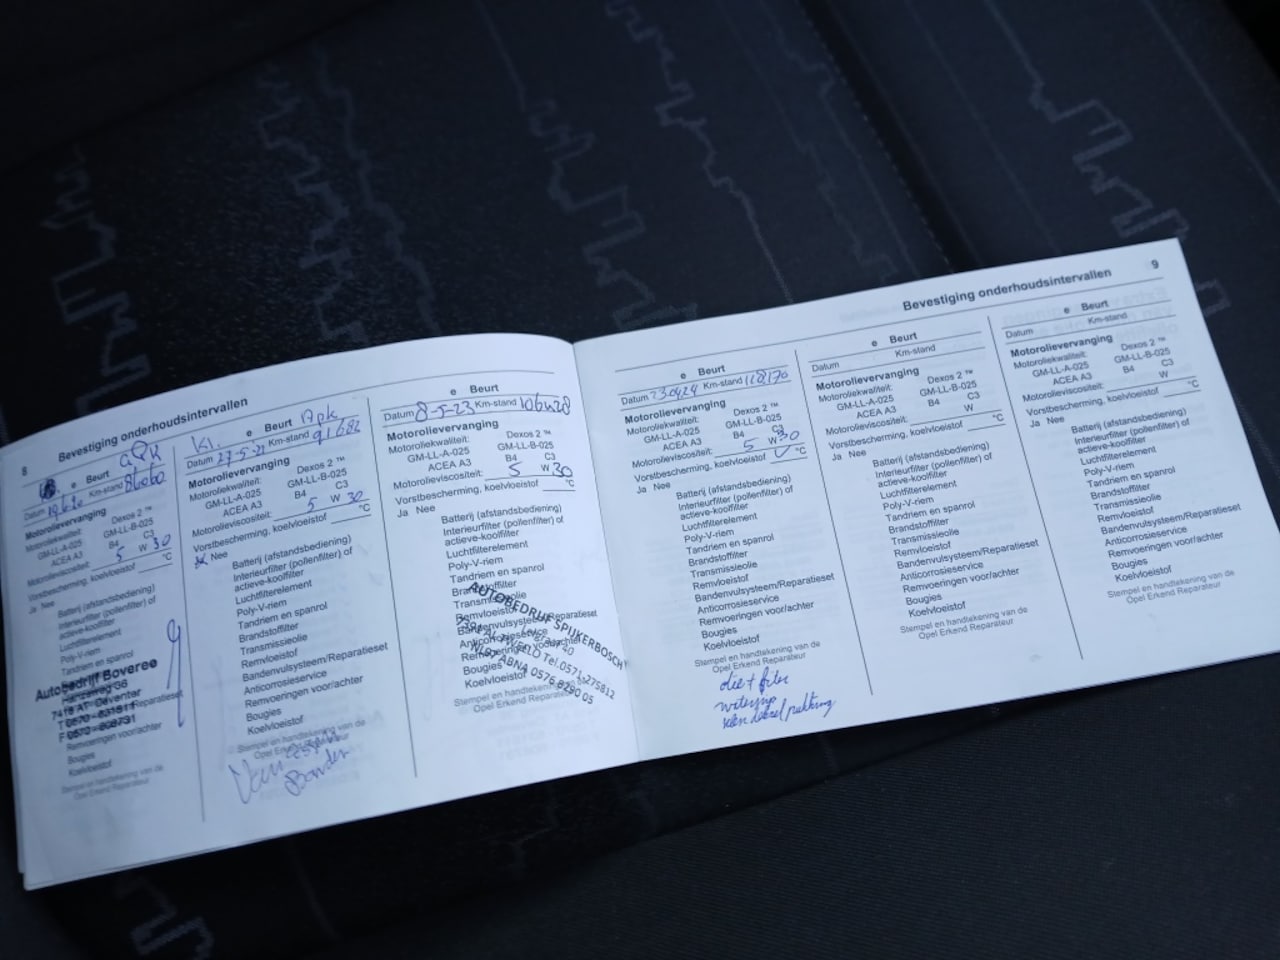 8 Bevestiging onderhoudsintervallen
e Beurt
Datum Km-stand 86060
Motorolievervanging
Motoroliekwaliteit: Dexos 2 ™
GM-LL-A-025 GM-LL-B-025
ACEA A3 B4 C3
Motorolieviscositeit: 5 W 30
Vorstbescherming, koelvloeistof °C
Ja Nee
Batterij (afstandsbediening)
Interieurfilter (pollenfilter) of
actieve-koolfilter
Luchtfilterelement
Poly-V-riem
Tandriem en spanrol
Autobedrijf Boveree
Hanzeweg 36
7418 AT Deventer
Remvoeringen voor/achter
Bougies
Koelvloeistof
Stempel en handtekening van de
Opel Erkend Reparateur
Kl. e Beurt Apk
Datum 27-5-21 Km-stand 91682
Motorolievervanging
Motoroliekwaliteit: Dexos 2 ™
GM-LL-A-025 GM-LL-B-025
ACEA A3 B4 C3
Motorolieviscositeit: 5 W 30
Vorstbescherming, koelvloeistof °C
Ja Nee
Batterij (afstandsbediening)
Interieurfilter (pollenfilter) of
actieve-koolfilter
Luchtfilterelement
Poly-V-riem
Tandriem en spanrol
Brandstoffilter
Transmissieolie
Remvloeistof
Bandenvulsysteem/Reparatieset
Anticorrosieservice
Remvoeringen voor/achter
Bougies
Koelvloeistof
Stempel en handtekening van de
Opel Erkend Reparateur
Banden
e Beurt
Datum 8-5-23 Km-stand 106428
Motorolievervanging
Motoroliekwaliteit: Dexos 2 ™
GM-LL-A-025 GM-LL-B-025
ACEA A3 B4 C3
Motorolieviscositeit: 5 W 30
Vorstbescherming, koelvloeistof °C
Ja Nee
Batterij (afstandsbediening)
Interieurfilter (pollenfilter) of
actieve-koolfilter
Luchtfilterelement
Poly-V-riem
Tandriem en spanrol
Brandstoffilter
Transmissieolie
Remvloeistof
Bandenvulsysteem/Reparatieset
Anticorrosieservice
Remvoeringen voor/achter
Bougies
Koelvloeistof
Stempel en handtekening van de
Opel Erkend Reparateur
AUTOBEDRIJF SPIJKERBOSCH
TWELLO Tel.0571-275812
ABNA 0576 8290 05
Bevestiging onderhoudsintervallen 9
e Beurt
Datum 230424 Km-stand 118170
Motorolievervanging
Motoroliekwaliteit: Dexos 2 ™
GM-LL-A-025 GM-LL-B-025
ACEA A3 B4 C3
Motorolieviscositeit: 5 W 30
Vorstbescherming, koelvloeistof °C
Ja Nee
Batterij (afstandsbediening)
Interieurfilter (pollenfilter) of
actieve-koolfilter
Luchtfilterelement
Poly-V-riem
Tandriem en spanrol
Brandstoffilter
Transmissieolie
Remvloeistof
Bandenvulsysteem/Reparatieset
Anticorrosieservice
Remvoeringen voor/achter
Bougies
Koelvloeistof
Stempel en handtekening van de
Opel Erkend Reparateur
pakking
e Beurt
Datum Km-stand
Motorolievervanging
Motoroliekwaliteit: Dexos 2 ™
GM-LL-A-025 GM-LL-B-025
ACEA A3 B4 C3
Motorolieviscositeit: W
Vorstbescherming, koelvloeistof °C
Ja Nee
Batterij (afstandsbediening)
Interieurfilter (pollenfilter) of
actieve-koolfilter
Luchtfilterelement
Poly-V-riem
Tandriem en spanrol
Brandstoffilter
Transmissieolie
Remvloeistof
Bandenvulsysteem/Reparatieset
Anticorrosieservice
Remvoeringen voor/achter
Bougies
Koelvloeistof
Stempel en handtekening van de
Opel Erkend Reparateur
e Beurt
Datum Km-stand
Motorolievervanging
Motoroliekwaliteit: Dexos 2 ™
GM-LL-A-025 GM-LL-B-025
ACEA A3 B4 C3
Motorolieviscositeit: W
Vorstbescherming, koelvloeistof °C
Ja Nee
Batterij (afstandsbediening)
Interieurfilter (pollenfilter) of
actieve-koolfilter
Luchtfilterelement
Poly-V-riem
Tandriem en spanrol
Brandstoffilter
Transmissieolie
Remvloeistof
Bandenvulsysteem/Reparatieset
Anticorrosieservice
Remvoeringen voor/achter
Bougies
Koelvloeistof
Stempel en handtekening van de
Opel Erkend Reparateur